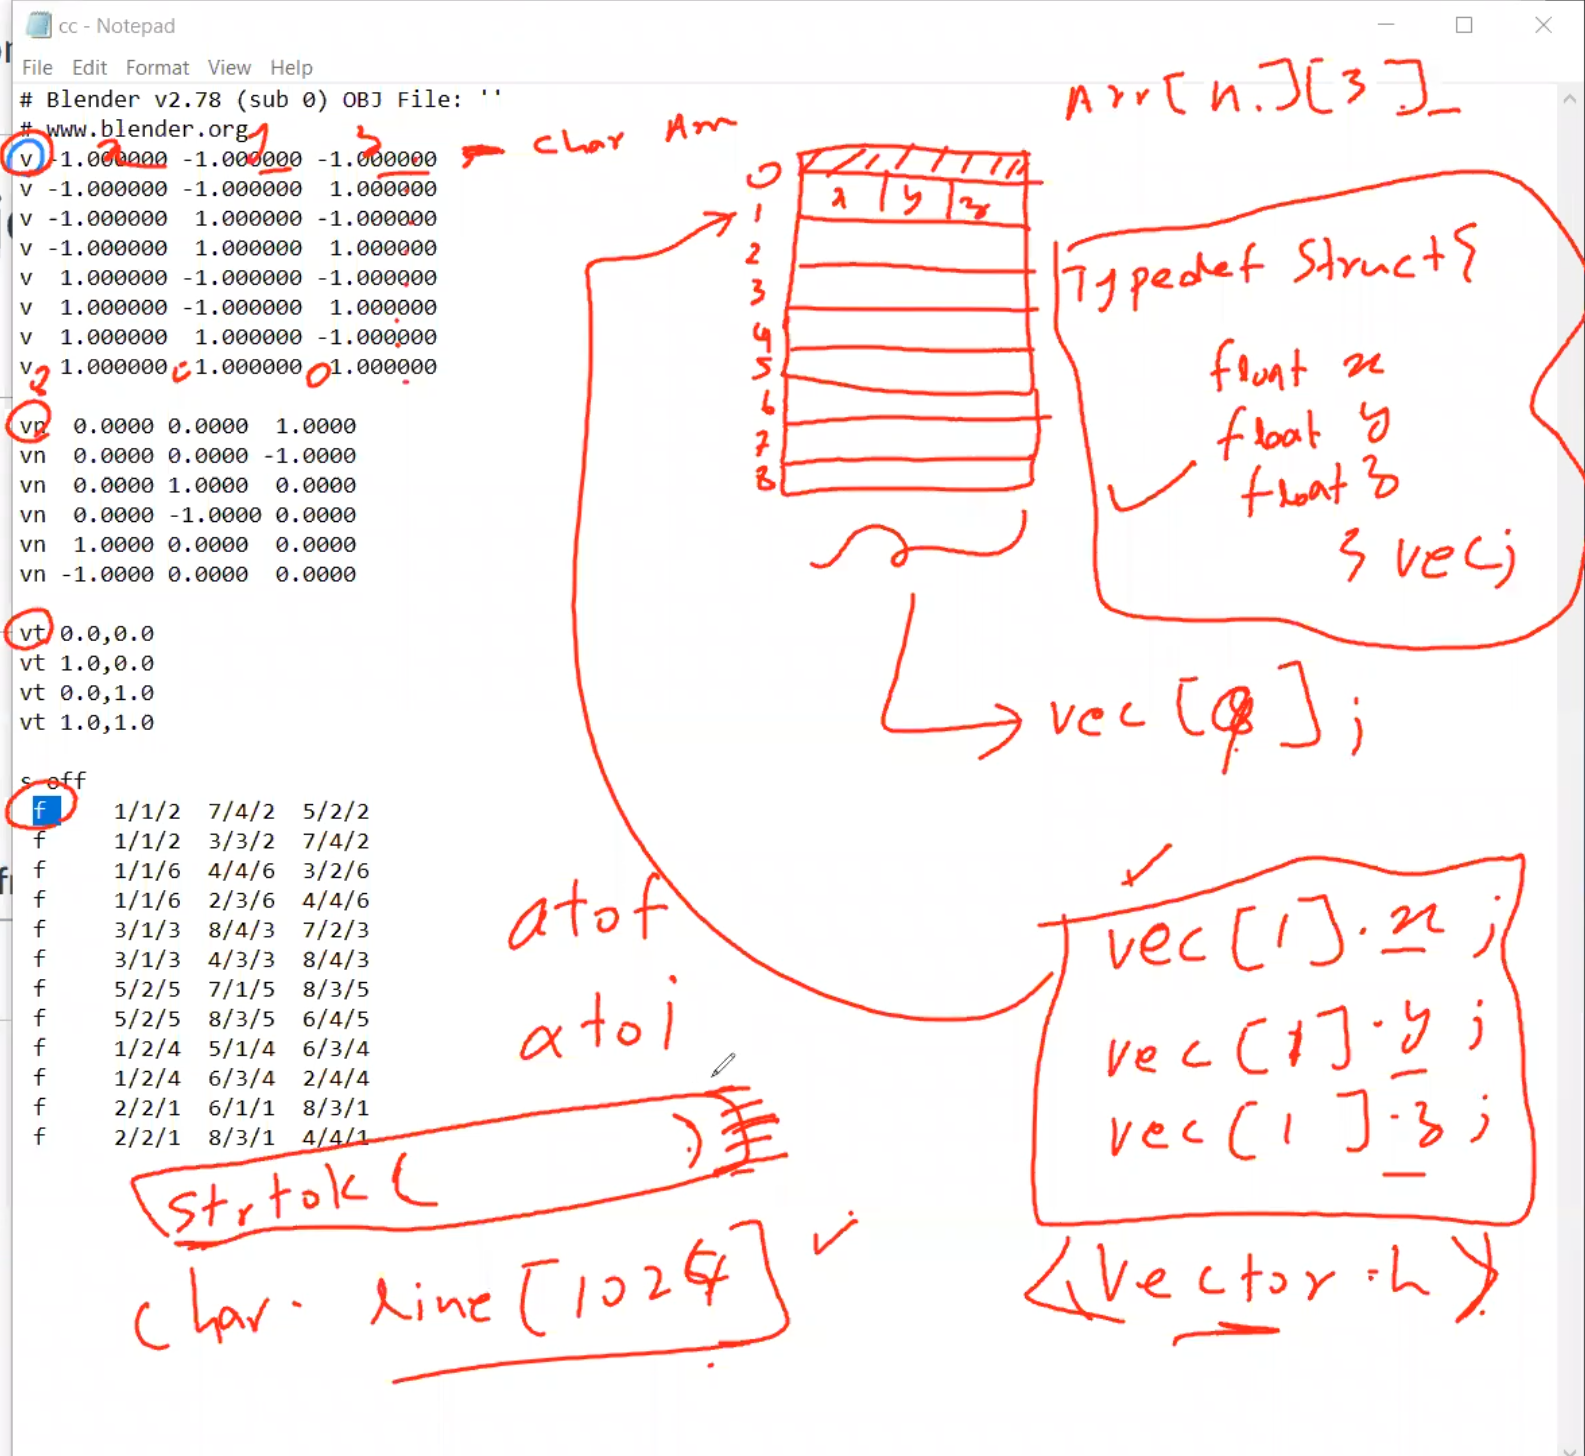 cc - Notepad
File Edit Format View Help
# Blender v2.78 (sub 0) OBJ File: ''
# www.blender.org
v -1.000000 -1.000000 -1.000000
v -1.000000 -1.000000 1.000000
v -1.000000 1.000000 -1.000000
v -1.000000 1.000000 1.000000
v 1.000000 -1.000000 -1.000000
v 1.000000 -1.000000 1.000000
v 1.000000 1.000000 -1.000000
v 1.000000 1.000000 1.000000
vn 0.0000 0.0000 1.0000
vn 0.0000 0.0000 -1.0000
vn 0.0000 1.0000 0.0000
vn 0.0000 -1.0000 0.0000
vn 1.0000 0.0000 0.0000
vn -1.0000 0.0000 0.0000
vt 0.0,0.0
vt 1.0,0.0
vt 0.0,1.0
vt 1.0,1.0
s off
f 1/1/2 7/4/2 5/2/2
f 1/1/2 3/3/2 7/4/2
f 1/1/6 4/4/6 3/2/6
f 1/1/6 2/3/6 4/4/6
f 3/1/3 8/4/3 7/2/3
f 3/1/3 4/3/3 8/4/3
f 5/2/5 7/1/5 8/3/5
f 5/2/5 8/3/5 6/4/5
f 1/2/4 5/1/4 6/3/4
f 1/2/4 6/3/4 2/4/4
f 2/2/1 6/1/1 8/3/1
f 2/2/1 8/3/1 4/4/1
Char Arr
Arr[n.][3]
0
1 x y z
2
3
4
5
6
7
8
Typedef Struct{
float x
float y
float z
} vec;
vec [ ] ;
atof
atoi
strtok ( )
char line [1024]
vec [1] . x ;
vec [1] . y ;
vec [1] . z ;
<Vector.h>